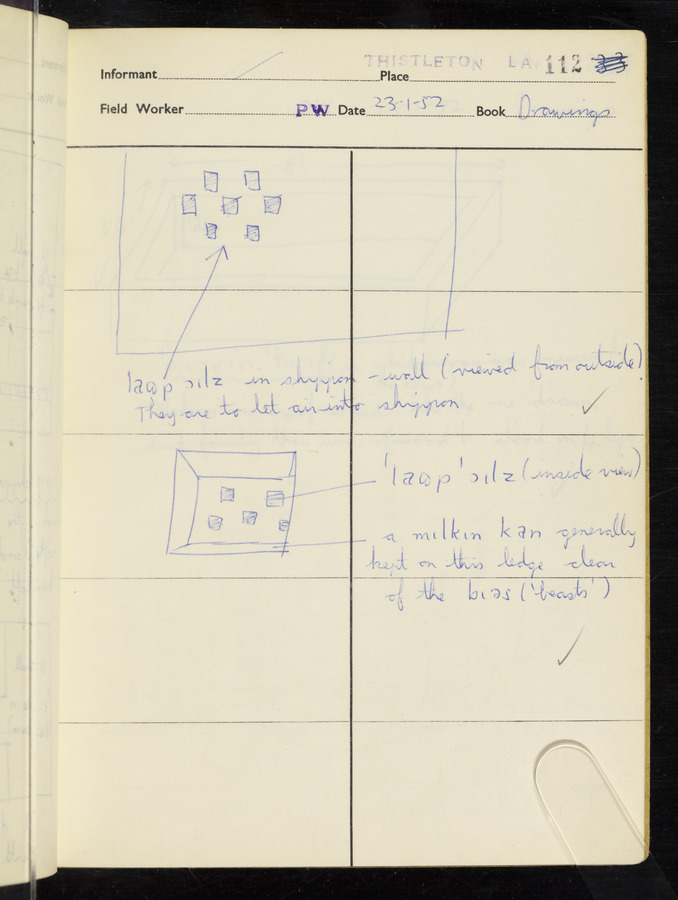 THISTLETON LA 112
Informant Place
Field Worker PW Date 23-1-52 Book Drawings
laʊp ɔɪlz in shippon-wall (viewed from outside).
They are to let air into shippon
'laʊp' ɔɪlz (inside view)
a milkin kan generally
kept on this ledge clear
of the bɪəs ('beasts')